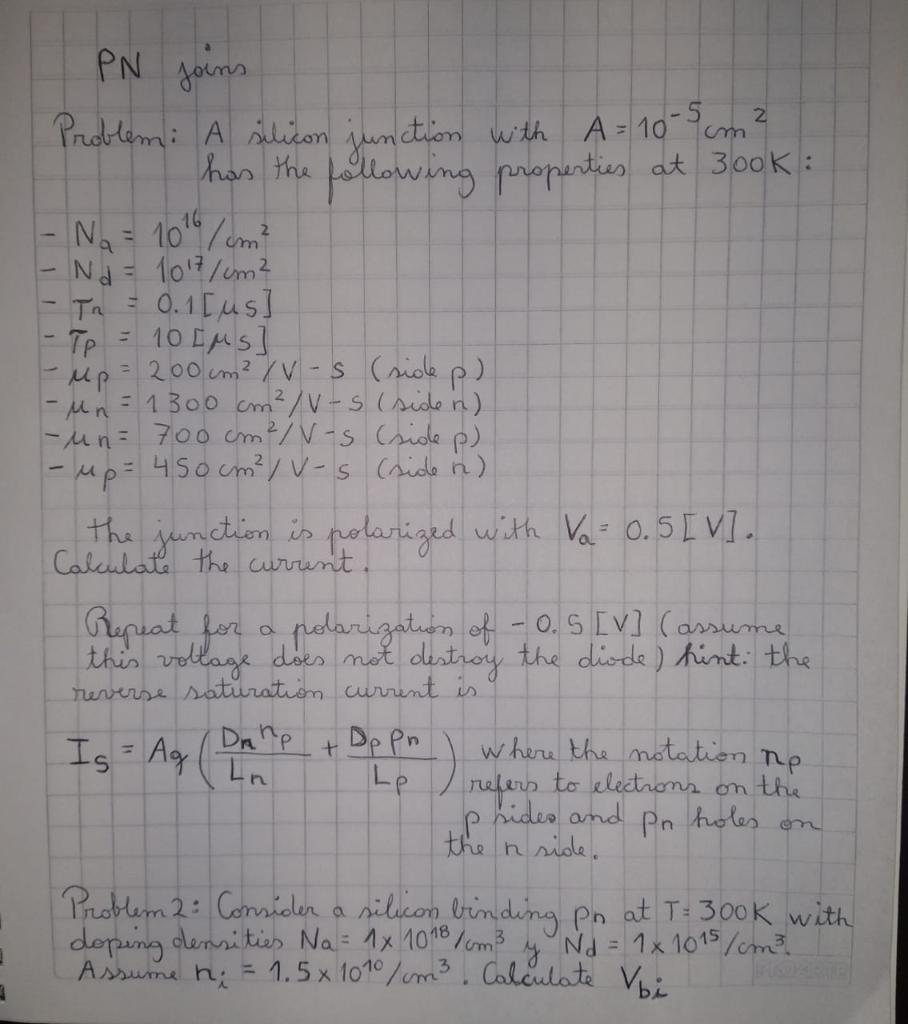 PN joins
Problem: A silicon junction with A = 10⁻⁵ cm²
has the following properties at 300K:
- Na = 10¹⁶/cm²
- Nd = 10¹⁷/cm²
- Tn = 0.1 [μs]
- Tp = 10 [μs]
- μp = 200 cm²/V-s (side p)
- μn = 1300 cm²/V-s (side n)
- μn = 700 cm²/V-s (side p)
- μp = 450 cm²/V-s (side n)
the junction is polarized with Va = 0.5 [V].
Calculate the current.
Repeat for a polarization of -0.5 [V] (assume
this voltage does not destroy the diode) hint: the
reverse saturation current is
Is = Aq (Dn np / Ln + Dp pn / Lp) where the notation np
refers to electrons on the
p sides and pn holes on
the n side.
Problem 2: Consider a silicon binding pn at T = 300K with
doping densities Na = 1 x 10¹⁸/cm³ y Nd = 1 x 10¹⁵/cm³.
Assume ni = 1.5 x 10¹⁰/cm³. Calculate Vbi